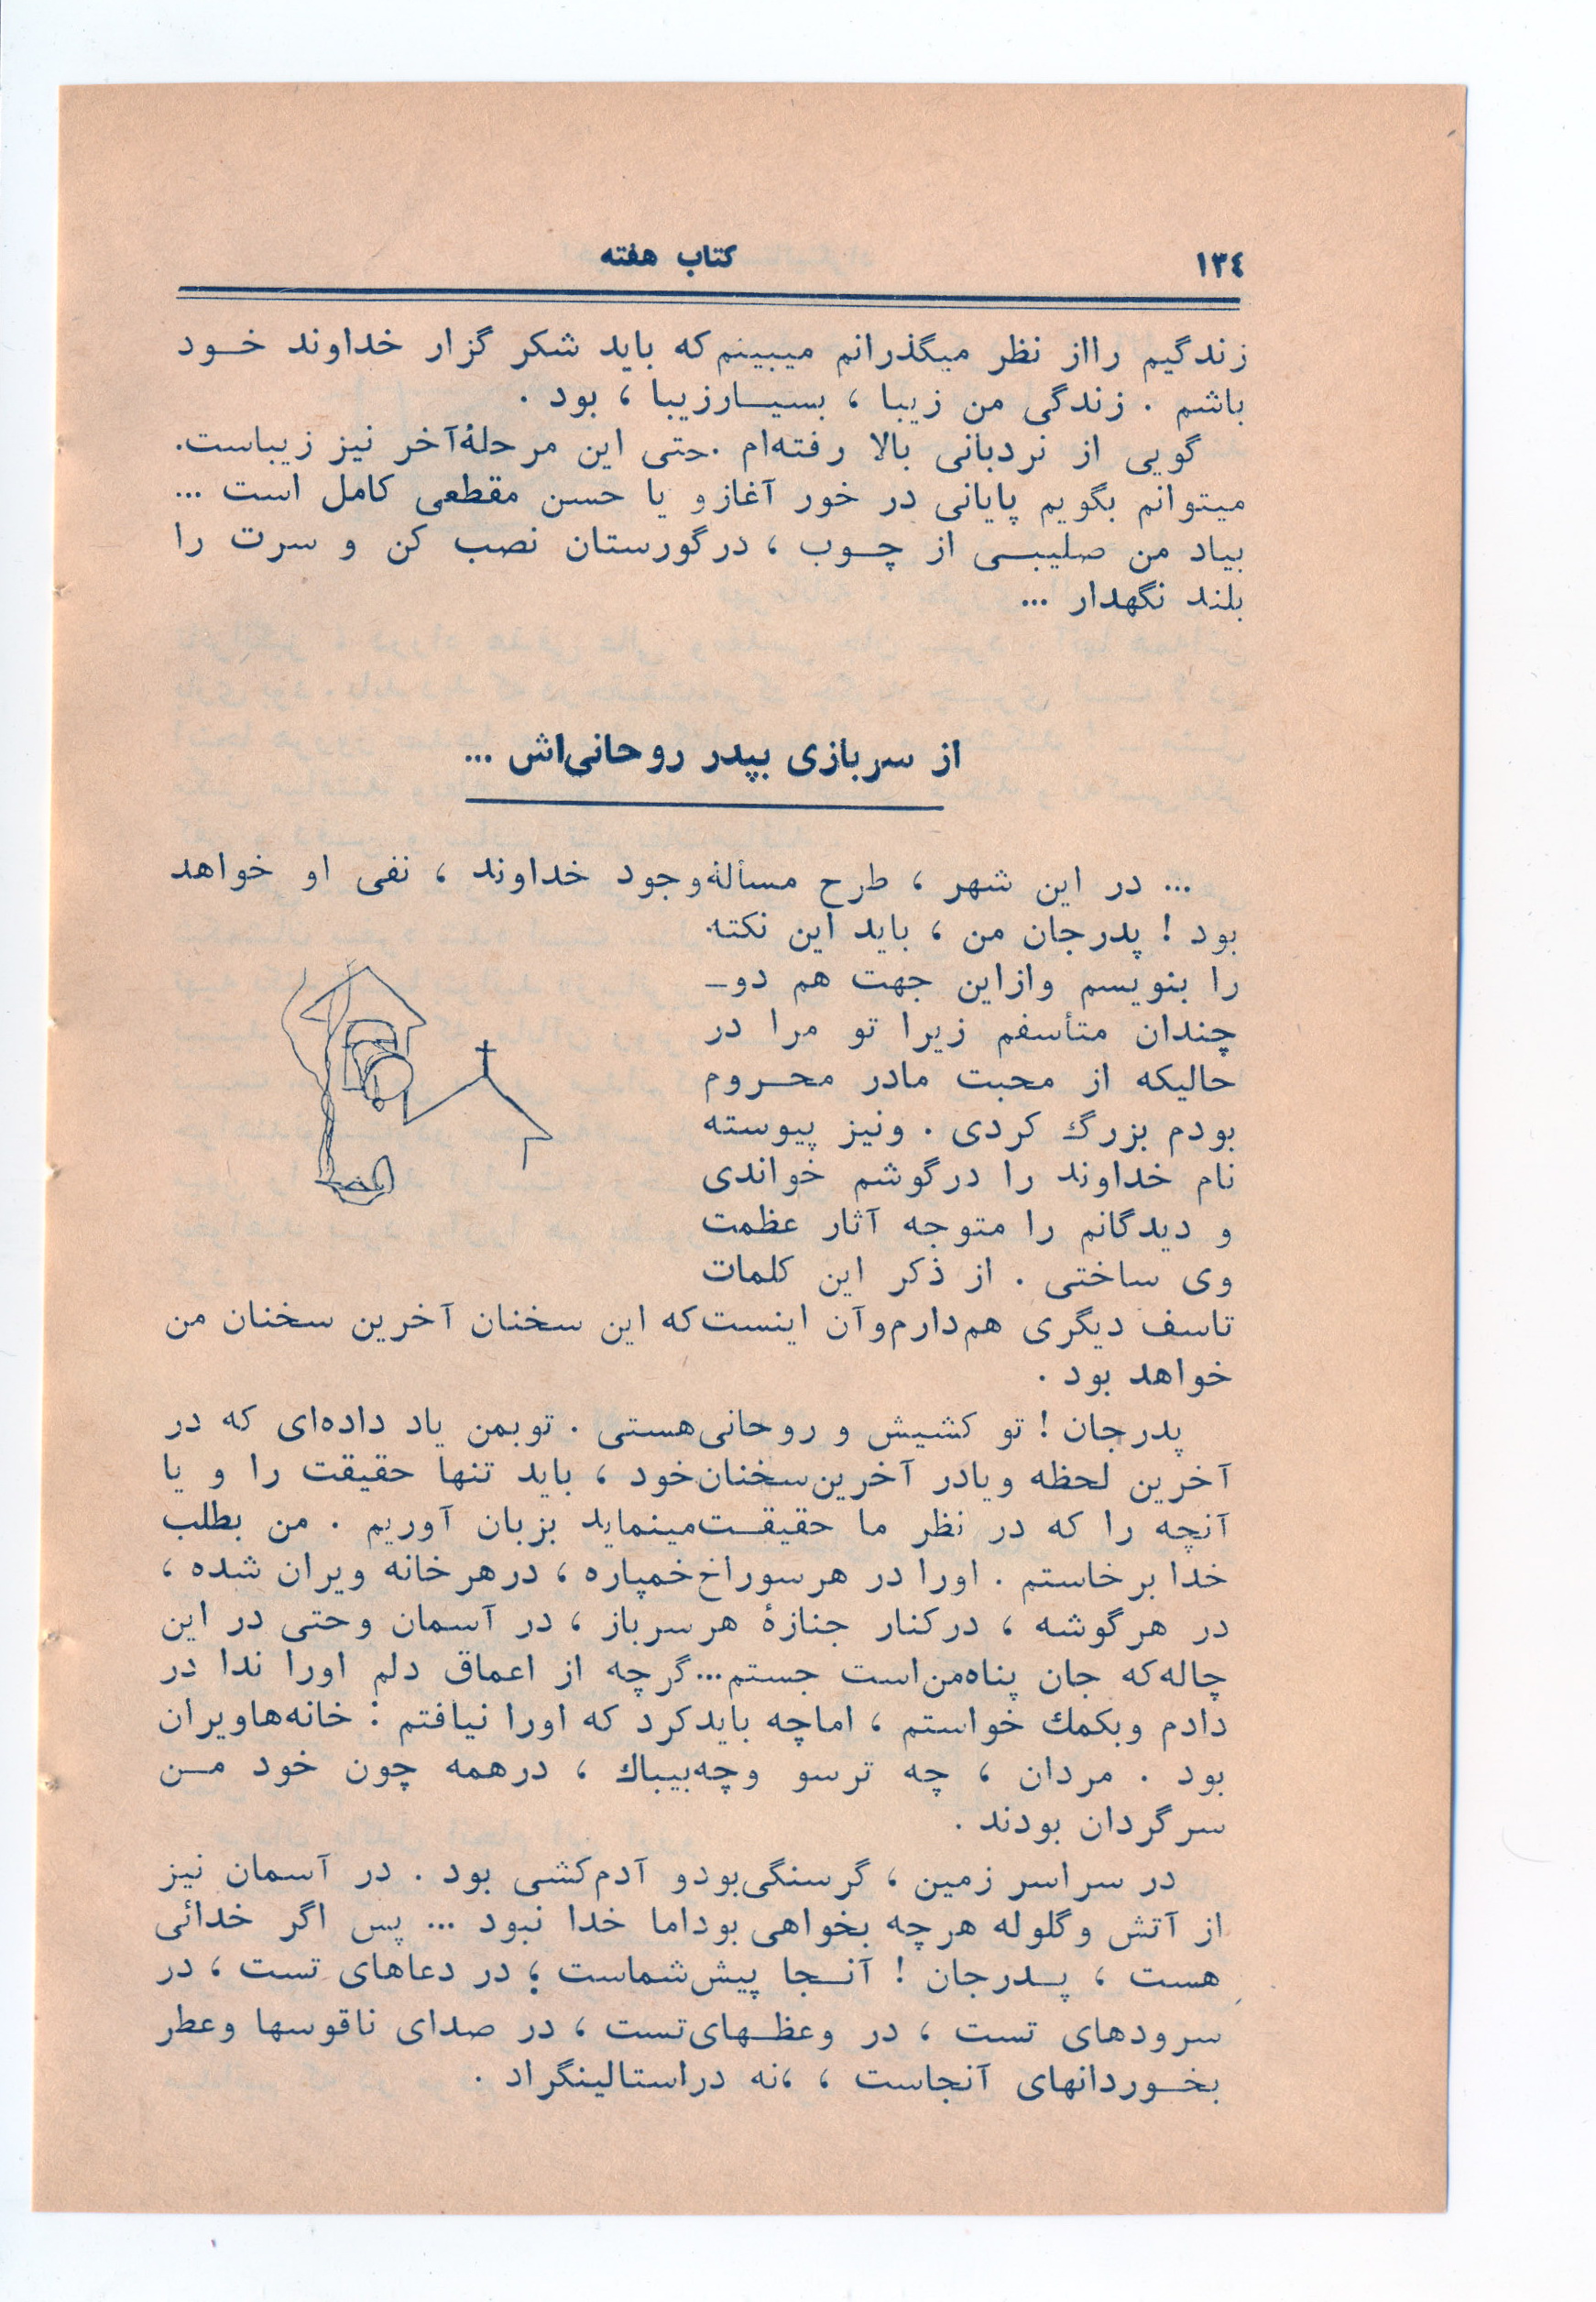 ۱۳٤
کتاب هفته
زندگیم رااز نظر میگذرانم میبینم‌که باید شکر گزار خداوند خـود
باشم . زندگی من زیبا ، بسیـارزیبا ، بود .
گویی از نردبانی بالا رفته‌ام .حتی این مرحلهٔ‌آخر نیز زیباست.
میتوانم بگویم پایانی در خور آغازو یا حسن مقطعی کامل است ...
بیاد من صلیبـی از چـوب ، درگورستان نصب کن و سرت را
بلند نگهدار ...
از سربازی بپدر روحانی‌اش ...
... در این شهر ، طرح مسألهٔ‌وجود خداوند ، نفی او خواهد
بود ! پدرجان من ، باید این نکته.
را بنویسم وازاین جهت هم دو-
چندان متأسفم زیرا تو مرا در
حالیکه از محبت مادر محـروم
بودم بزرگ کردی . ونیز پیوسته
نام خداوند را درگوشم خواندی
و دیدگانم را متوجه آثار عظمت
وی ساختی . از ذکر این کلمات
تاسف دیگری هم‌دارم‌وآن اینست‌که این سخنان آخرین سخنان من
خواهد بود .
پدرجان ! تو کشیش و روحانی‌هستی . توبمن یاد داده‌ای که در
آخرین لحظه ویادر آخرین‌سخنان‌خود ، باید تنها حقیقت را و یا
آنچه را که در نظر ما حقیقـت‌مینماید بزبان آوریم . من بطلب
خدا برخاستم . اورا در هرسوراخ‌خمپاره ، درهرخانه ویران شده ،
در هرگوشه ، درکنار جنازهٔ هرسرباز ، در آسمان وحتی در این
چاله‌که جان پناه‌من‌است جستم...گرچه از اعماق دلم اورا ندا در
دادم وبکمك خواستم ، اماچه بایدکرد که اورا نیافتم : خانه‌هاویران
بود . مردان ، چه ترسو وچه‌بیباك ، درهمه چون خود مـن
سرگردان بودند .
در سراسر زمین ، گرسنگی‌بودو آدم‌کشی بود . در آسمان نیز
از آتش وگلوله هرچه بخواهی بوداما خدا نبود ... پس اگر خدائی
هست ، پـدرجان ! آنـجا پیش‌شماست ؛ در دعاهای تست ، در
سرودهای تست ، در وعظـهای‌تست ، در صدای ناقوسها وعطر
بخـوردانهای آنجاست ، ،نه دراستالینگراد .